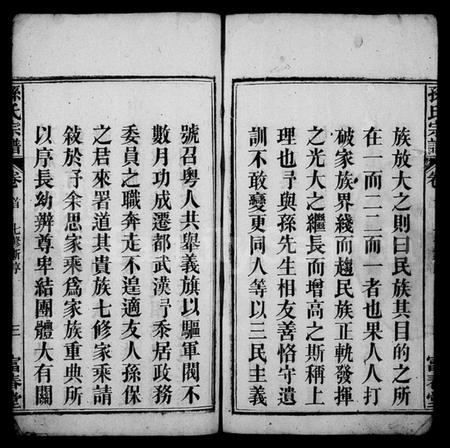 孫氏宗譜
卷
族放大之則曰民族其目的之所
在一而二二而一者也果人人打
破家族界綫而趨民族正軌發揮
之光大之繼長而增高之斯稱上
理也予與孫先生相友善恪守遺
訓不敢變更同人等以三民主義
號召粵人共舉義旗以驅軍閥不
數月功成遷都武漢予忝居政務
委員之職奔走不遑適友人孫保
之君來署道其貴族七修家乘請
敍於予余思家乘為家族重典所
以序長幼辨尊卑結團體大有關
孫氏宗譜
卷首
三
富春堂
富春堂